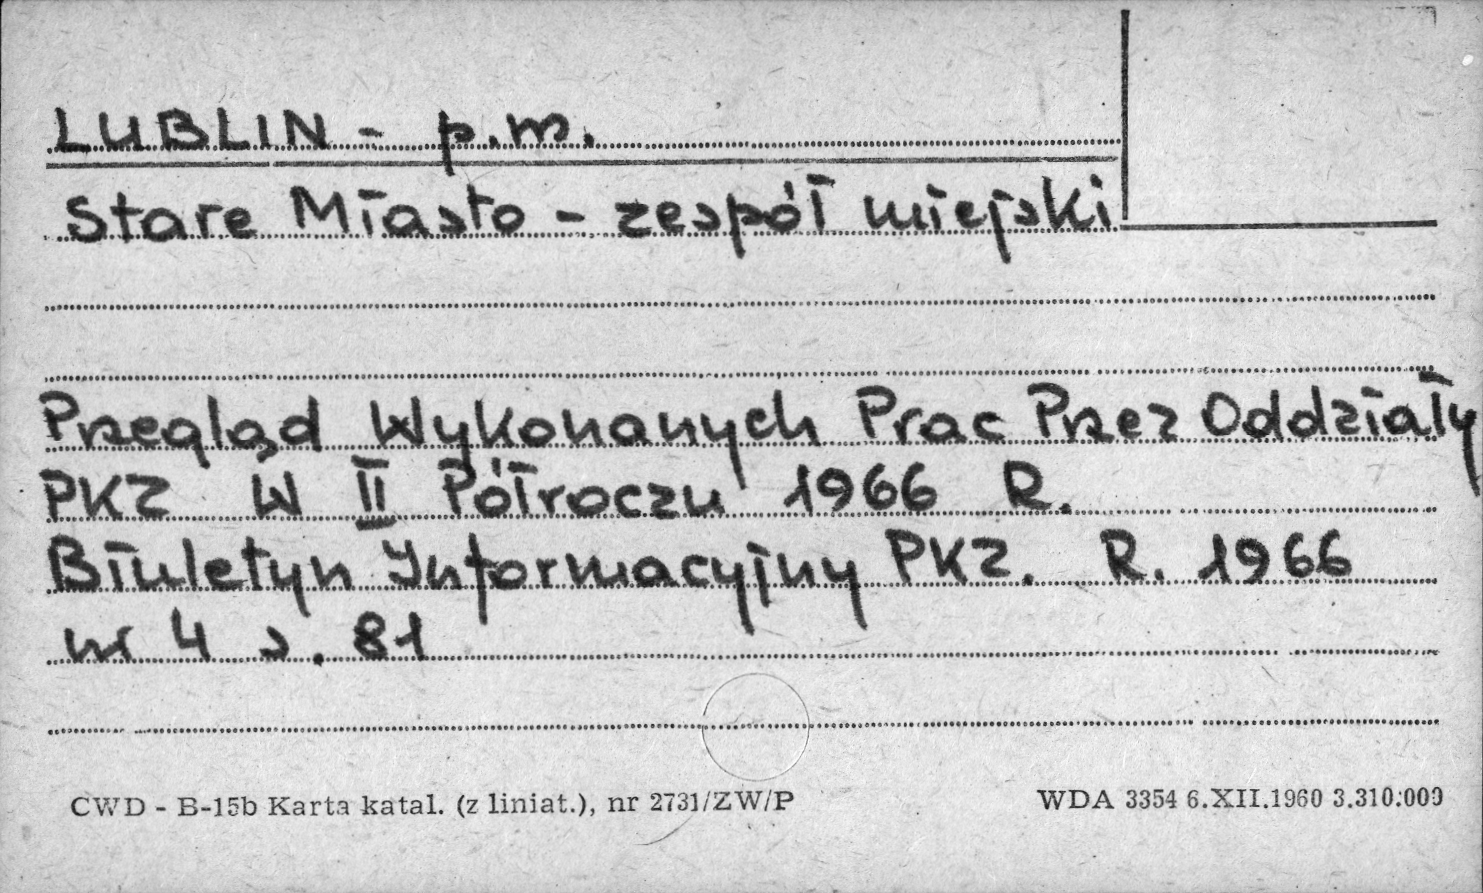 LUBLIN - p.m.
Stare Miasto - zespół miejski
Przegląd Wykonanych Prac Przez Oddziały
PKZ W II Półroczu 1966 R.
Biuletyn Informacyjny PKZ. R. 1966
nr 4 s. 81
CWD - B-15b Karta katal. (z liniat.), nr 2731/ZW/P
WDA 3354 6.XII.1960 3.310.000